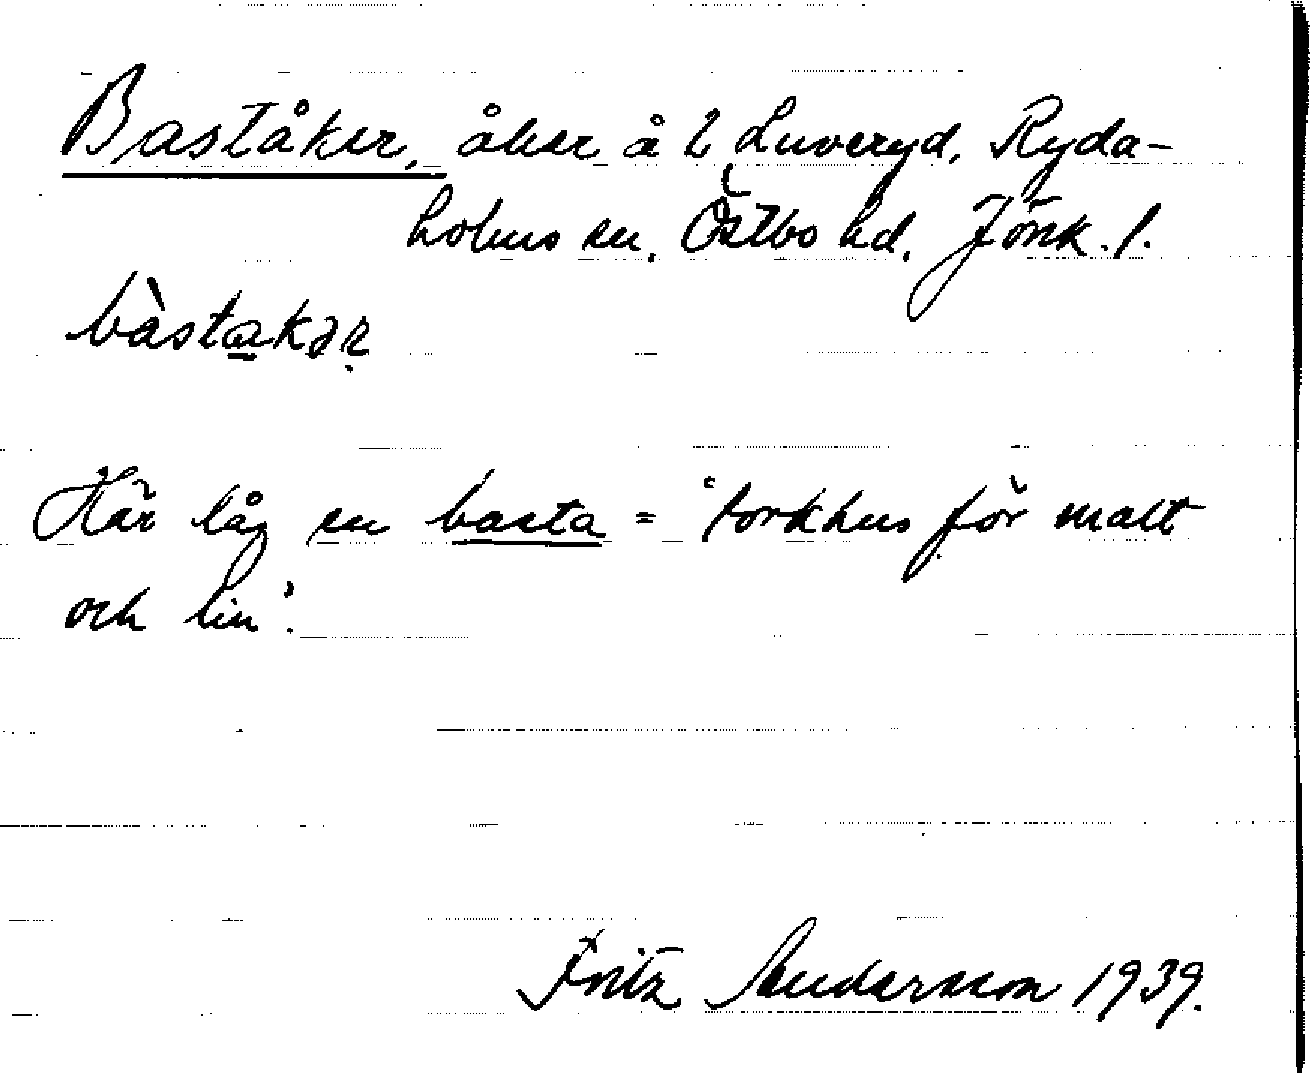 Baståker, åker å 2 Luveryd, Ryda-
holms sn, Östbo hd, Jönk. l.
bàstakər
Här låg en basta = 'torkhus för malt
och lin'.
Fritz Andersson 1939.